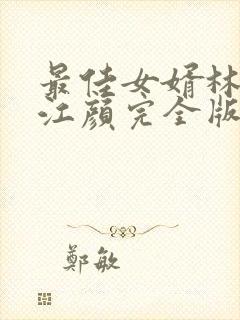 最佳女婿林
江顔完全版
鄭敏